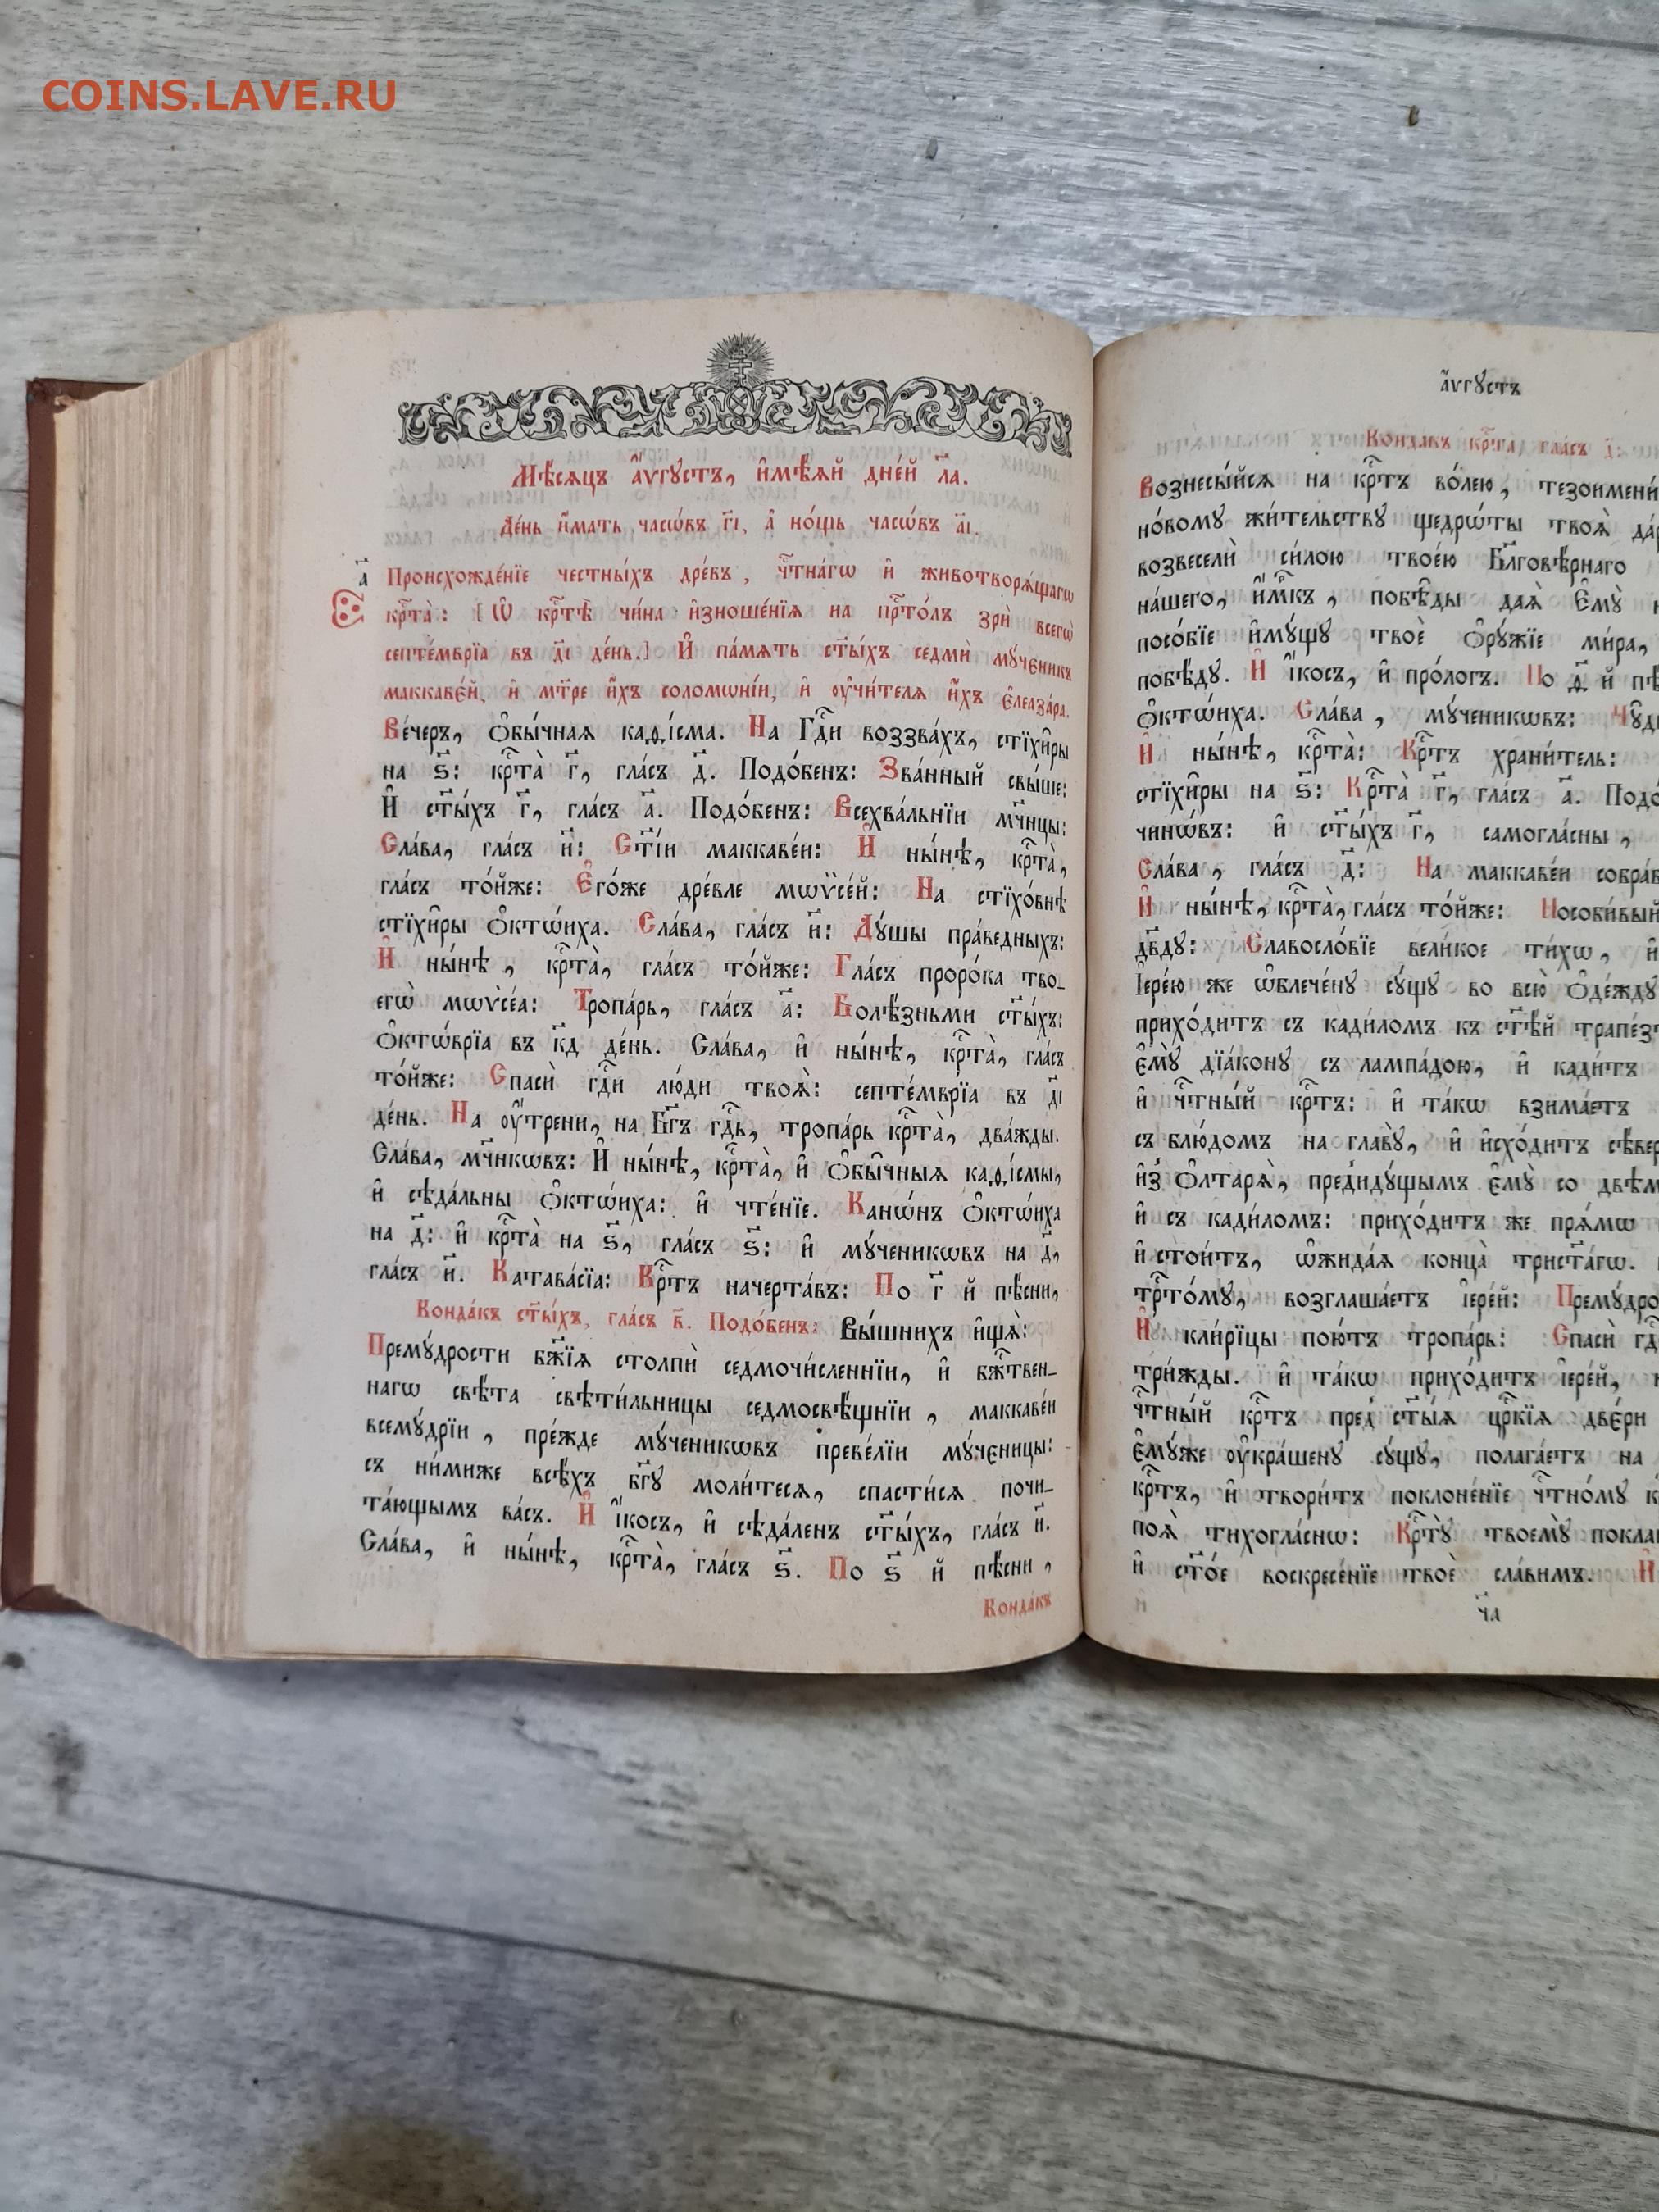 COINS.LAVE.RU
Мѣ́сяцъ а҆́ѵгꙋстъ, и҆мѣ́ѧй дне́й л҃а.
Де́нь и҆́мать часѡ́въ г҃і, а҆ но́щь часѡ́въ а҃і.
а҃
Происхожде́нїе честны́хъ дре́въ, чⷭ҇тна́гѡ и҆ животворѧ́щагѡ
крⷭ҇та̀: [Ѿ крⷭ҇тѣ̀ чи́на и҆зноше́нїѧ на прⷭ҇то́лъ зрѝ всегѡ̀
септе́мврїа въ д҃і де́нь.] И҆ па́мѧть ст҃ы́хъ седмѝ мꙋ́ченикъ
маккаве́й, и҆ мт҃ре и҆́хъ соломѡні́и, и҆ ᲂу҆чи́телѧ и҆́хъ є҆леаза́ра.
Ве́черъ, ѻ҆бы́чнаѧ каѳі́сма. На Гдⷭ҇и воззва́хъ, стїхи̑ры
на ѕ҃: крⷭ҇та̀ г҃, гла́съ д҃. Подо́бенъ: Зва́нный свы́ше:
И҆ ст҃ы́хъ г҃, гла́съ а҃. Подо́бенъ: Всехва́льнїи мч҃нцы:
Сла́ва, гла́съ и҃: Ст҃і́и маккаве́и: И҆ ны́нѣ, крⷭ҇та̀,
гла́съ то́йже: Є҆го́же дре́вле мѡѷсе́й: На стїхо́внѣ
стїхи̑ры ѻ҆ктѡ́иха. Сла́ва, гла́съ и҃: Дꙋ́шы пра́ведныхъ:
И҆ ны́нѣ, крⷭ҇та̀, гла́съ то́йже: Гла́съ проро́ка тво-
егѡ̀ мѡѷсе́а: Тропа́рь, гла́съ а҃: Болѣ́зньми ст҃ы́хъ:
ѻ҆ктѡ́врїа въ к҃д де́нь. Сла́ва, и҆ ны́нѣ, крⷭ҇та̀, гла́съ
то́йже: Спасѝ гдⷭ҇и лю́ди твоѧ̑: септе́мврїа въ д҃і
де́нь. На ᲂу҆́трени, на Бг҃ъ гдⷭ҇ь, тропа́рь крⷭ҇та̀, два́жды.
Сла́ва, мч҃нкѡвъ: И҆ ны́нѣ, крⷭ҇та̀, и҆ ѻ҆бы̑чныѧ каѳі́смы,
и҆ сѣда́льны ѻ҆ктѡ́иха: и҆ чте́нїе. Канѡ́нъ ѻ҆ктѡ́иха
на д҃: и҆ крⷭ҇та̀ на ѕ҃, гла́съ ѕ҃: и҆ мꙋ́ченикѡвъ на д҃,
гла́съ и҃. Катава́сїа: Крⷭ҇тъ начерта́въ: По г҃ й пѣ́сни,
Конда́къ ст҃ы́хъ, гла́съ в҃. Подо́бенъ: Вы́шнихъ и҆щѧ̀:
Премꙋ́дрости бж҃їѧ столпѝ седмочи́сленнїи, и҆ бжⷭ҇твен-
нагѡ свѣ́та свѣти́льницы седмосвѣ́щнїи, маккаве́и
всемꙋ́дрїи, пре́жде мꙋ́ченикѡвъ преве́лїи мꙋ́ченицы:
съ ни́миже всѣ́хъ бг҃ꙋ моли́тесѧ, спасти́сѧ почи-
та́ющымъ ва́съ. И҆ і҆́косъ, и҆ сѣда́ленъ ст҃ы́хъ, гла́съ и҃.
Сла́ва, и҆ ны́нѣ, крⷭ҇та̀, гла́съ ѕ҃. По ѕ҃ й пѣ́сни,
Конда́къ
а҆́ѵгꙋстъ
Конда́къ крⷭ҇та̀ гла́съ д҃:
Вознесы́йсѧ на крⷭ҇тъ во́лею, тезоимени́
но́вомꙋ жи́тельствꙋ щедрѡ́ты твоѧ̑
возвеселѝ си́лою твое́ю Бл҃говѣ́рнаго
на́шего, побѣ́ды даѧ̀ є҆мꙋ̀
посо́бїе и҆мꙋ́щꙋ твоѐ ѻ҆рꙋ́жїе ми́ра,
побѣ́дꙋ. И҆ і҆́косъ, и҆ про́логъ. По д҃ й
ѻ҆ктѡ́иха. Сла́ва, мꙋ́ченикѡвъ:
И҆ ны́нѣ, крⷭ҇та̀: Крⷭ҇тъ храни́тель:
стїхи̑ры на ѕ҃: Крⷭ҇та̀ г҃, гла́съ а҃.
чинѡ́въ: и҆ ст҃ы́хъ г҃, самогла́сны,
Сла́ва, гла́съ д҃: На маккаве́и
И҆ ны́нѣ, крⷭ҇та̀, гла́съ то́йже:
дв҃дꙋ: Славосло́вїе вели́кое ти́хѡ, и҆
І҆ере́ю же ѡ҆блече́нꙋ сꙋ́щꙋ во всю̀ ѻ҆де́ждꙋ
прихо́дитъ съ кади́ломъ къ ст҃ѣ́й
є҆мꙋ̀ дїа́конꙋ съ лампа́дою, и҆ кади́тъ
и҆ чⷭ҇тны́й крⷭ҇тъ: и҆ та́кѡ взима́етъ
съ блю́домъ на главꙋ̀, и҆ и҆схо́дитъ
и҆з̾ ѻ҆лтарѧ̀, пред̾идꙋ́щымъ є҆мꙋ̀ со
и҆ съ кади́ломъ: прихо́дитъ же прѧ́мѡ
и҆ стои́тъ, ѡ҆жида́ѧ конца̀ трист҃а́гѡ.
возглаша́етъ і҆ере́й:
И҆ кли́рїцы пою́тъ тропа́рь: Спасѝ
три́жды. и҆ та́кѡ прихо́дитъ і҆ере́й,
чⷭ҇тны́й крⷭ҇тъ пред̾ ст҃ы̑ѧ цр҃кїѧ две́ри
є҆мꙋ́же ᲂу҆кра́шенꙋ сꙋ́щꙋ, полага́етъ на
крⷭ҇тъ, и҆ твори́тъ поклоне́нїе чⷭ҇тно́мꙋ
поѧ̀ тихогла́снѡ: Крⷭ҇тꙋ̀ твоемꙋ̀
и҆ ст҃о́е воскресе́нїе твоѐ сла́вимъ. И҆
ч҃а